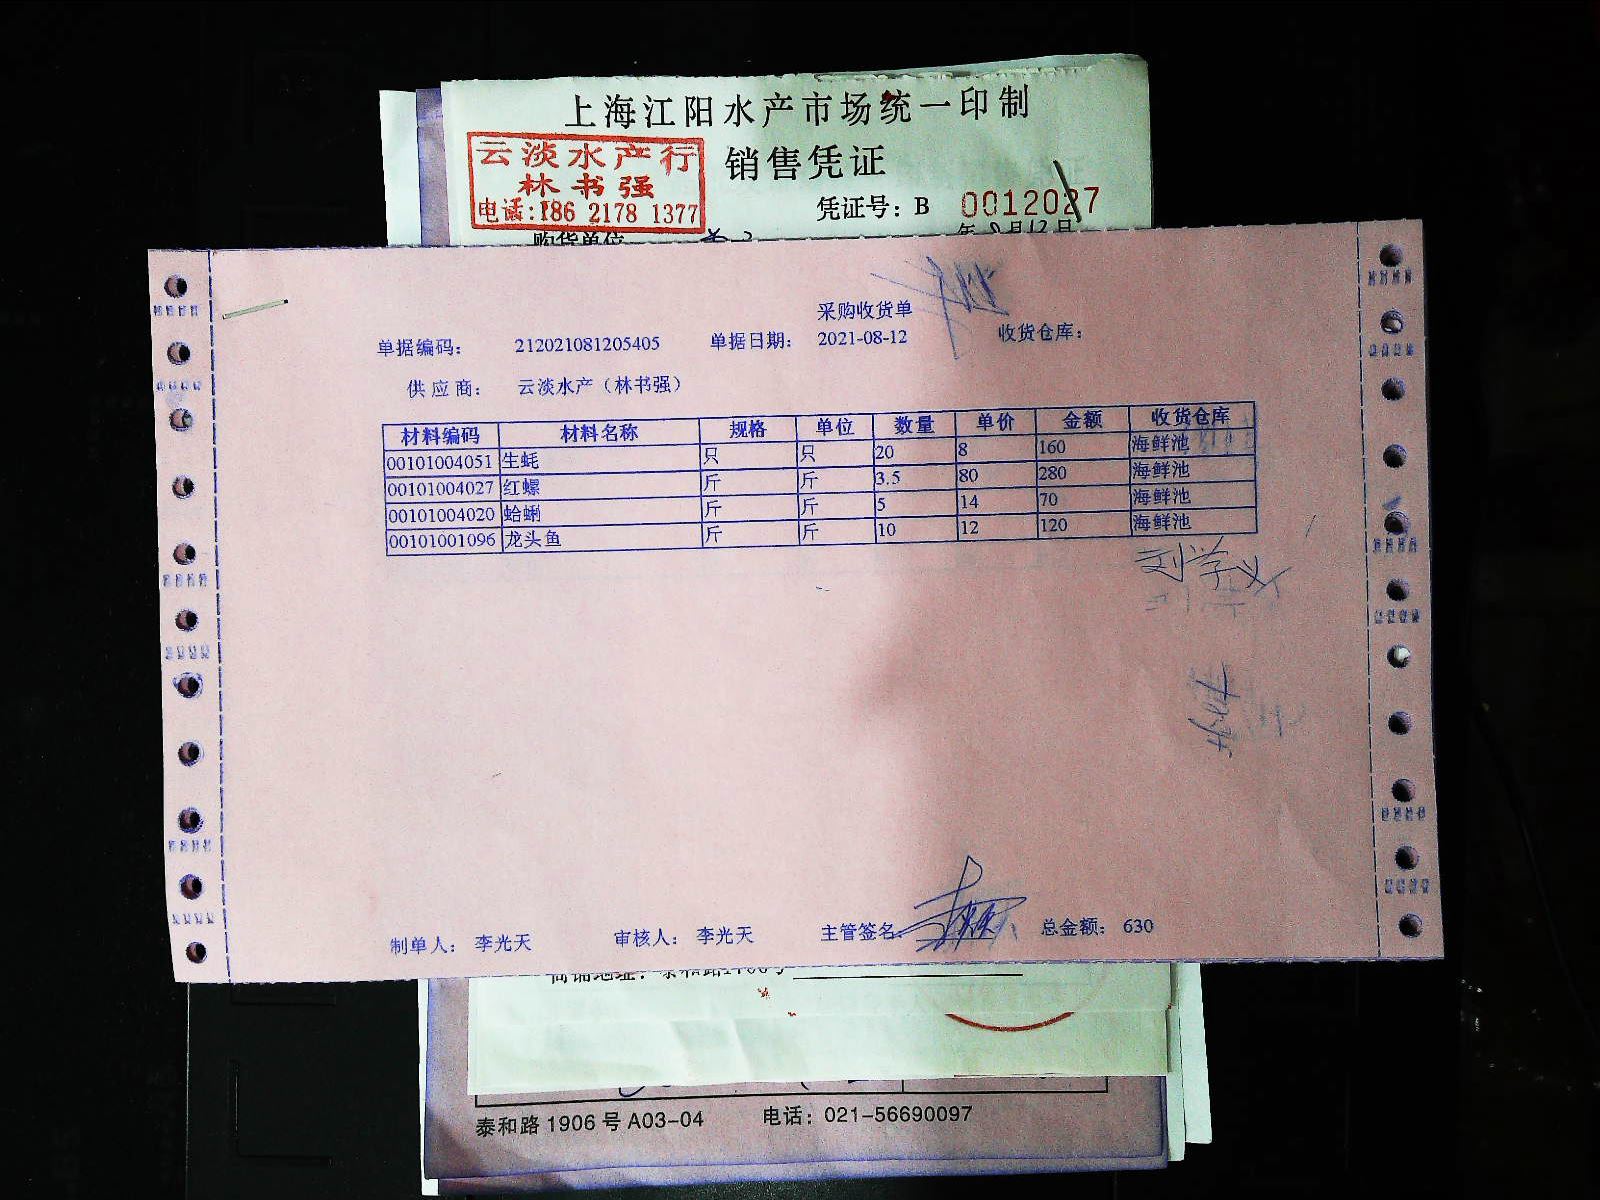 上海江阳水产市场统一印制
云淡水产行
林书强
电话:186 2178 1377
销售凭证
凭证号：B 0012027
购货单位
年8月12日
采购收货单
单据编码： 212021081205405 单据日期： 2021-08-12 收货仓库：
供应商： 云淡水产（林书强）
材料编码 材料名称 规格 单位 数量 单价 金额 收货仓库
00101004051 生蚝 只 只 20 8 160 海鲜池
00101004027 红螺 斤 斤 3.5 80 280 海鲜池
00101004020 蛤蜊 斤 斤 5 14 70 海鲜池
00101001096 龙头鱼 斤 斤 10 12 120 海鲜池
制单人： 李光天 审核人： 李光天 主管签名 总金额： 630
泰和路 1906 号 A03-04 电话：021-56690097